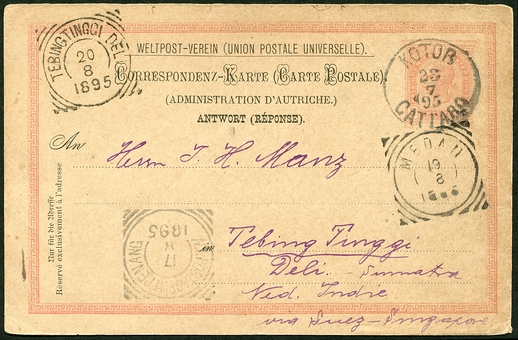 TEBINGTINGGI DELI
20
8
1895
WELTPOST-VEREIN (UNION POSTALE UNIVERSELLE).
CORRESPONDENZ-KARTE (CARTE POSTALE).
(ADMINISTRATION D'AUTRICHE.)
ANTWORT (RÉPONSE).
KOTOR
23
7
95
CATTARO
MEDAN
19
8
An
Herrn J. H. Manz
Nur für die Adresse
Réservé exclusivement à l'adresse
17
1895
in
Tebing Tinggi
Deli. Sumatra
Ned. Indie
via Suez-Singapore